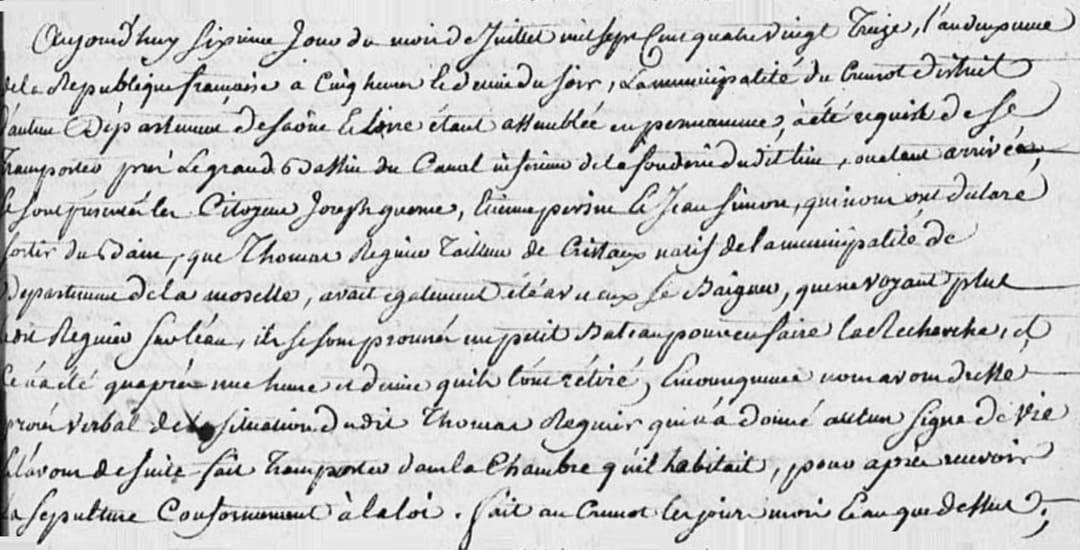 Aujourd'huy sixieme Jour du mois de Juillet mil sept Cent quatre vingt Treize, l'an deuxieme
de la Republique française a Cinq heures et demie du soir, La municipalité du Creusot district
d'autun Département de saône et Loire étant assemblée en permanance, à été requise de se
Transporter près Le grand Bassin du Canal inferieur de la fonderie dudit lieu, ou étant arrivés,
se sont présentés les Citoyens Joseph, Etienne et Jean Simon, qui nous ont declaré
sortir du Bain, que Thomas Regnier Tailleur de Cristaux natif de la municipalité de
Departement de la moselle, avait egalement été avec eux se Baigner, que ne voyant plus
ledit Regnier sur l'eau, ils se sont procurés un petit Bateau pour en faire la Recherche, et
ce n'a été qu'après une heure et demie qu'ils l'ont rétiré, En conséquence nous avons dressé
procès verbal de la situation dudit Thomas Regnier qui n'a donné aucun signe de vie
et l'avons de suite fait Transporter dans la Chambre qu'il habitait, pour apres recevoir
la sepulture Conformement à la loi. fait au Creusot les jour mois et an que dessus.